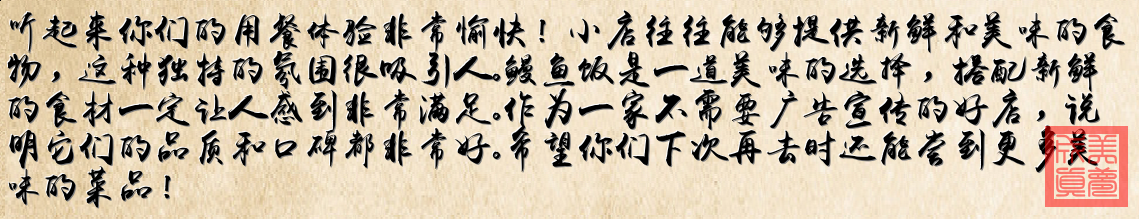 听起来你们的用餐体验非常愉快！小店往往能够提供新鲜和美味的食
物，这种独特的氛围很吸引人。鳗鱼饭是一道美味的选择，搭配新鲜
的食材一定让人感到非常满足。作为一家不需要广告宣传的好店，说
明它们的品质和口碑都非常好。希望你们下次再去时还能尝到更多美
味的菜品！